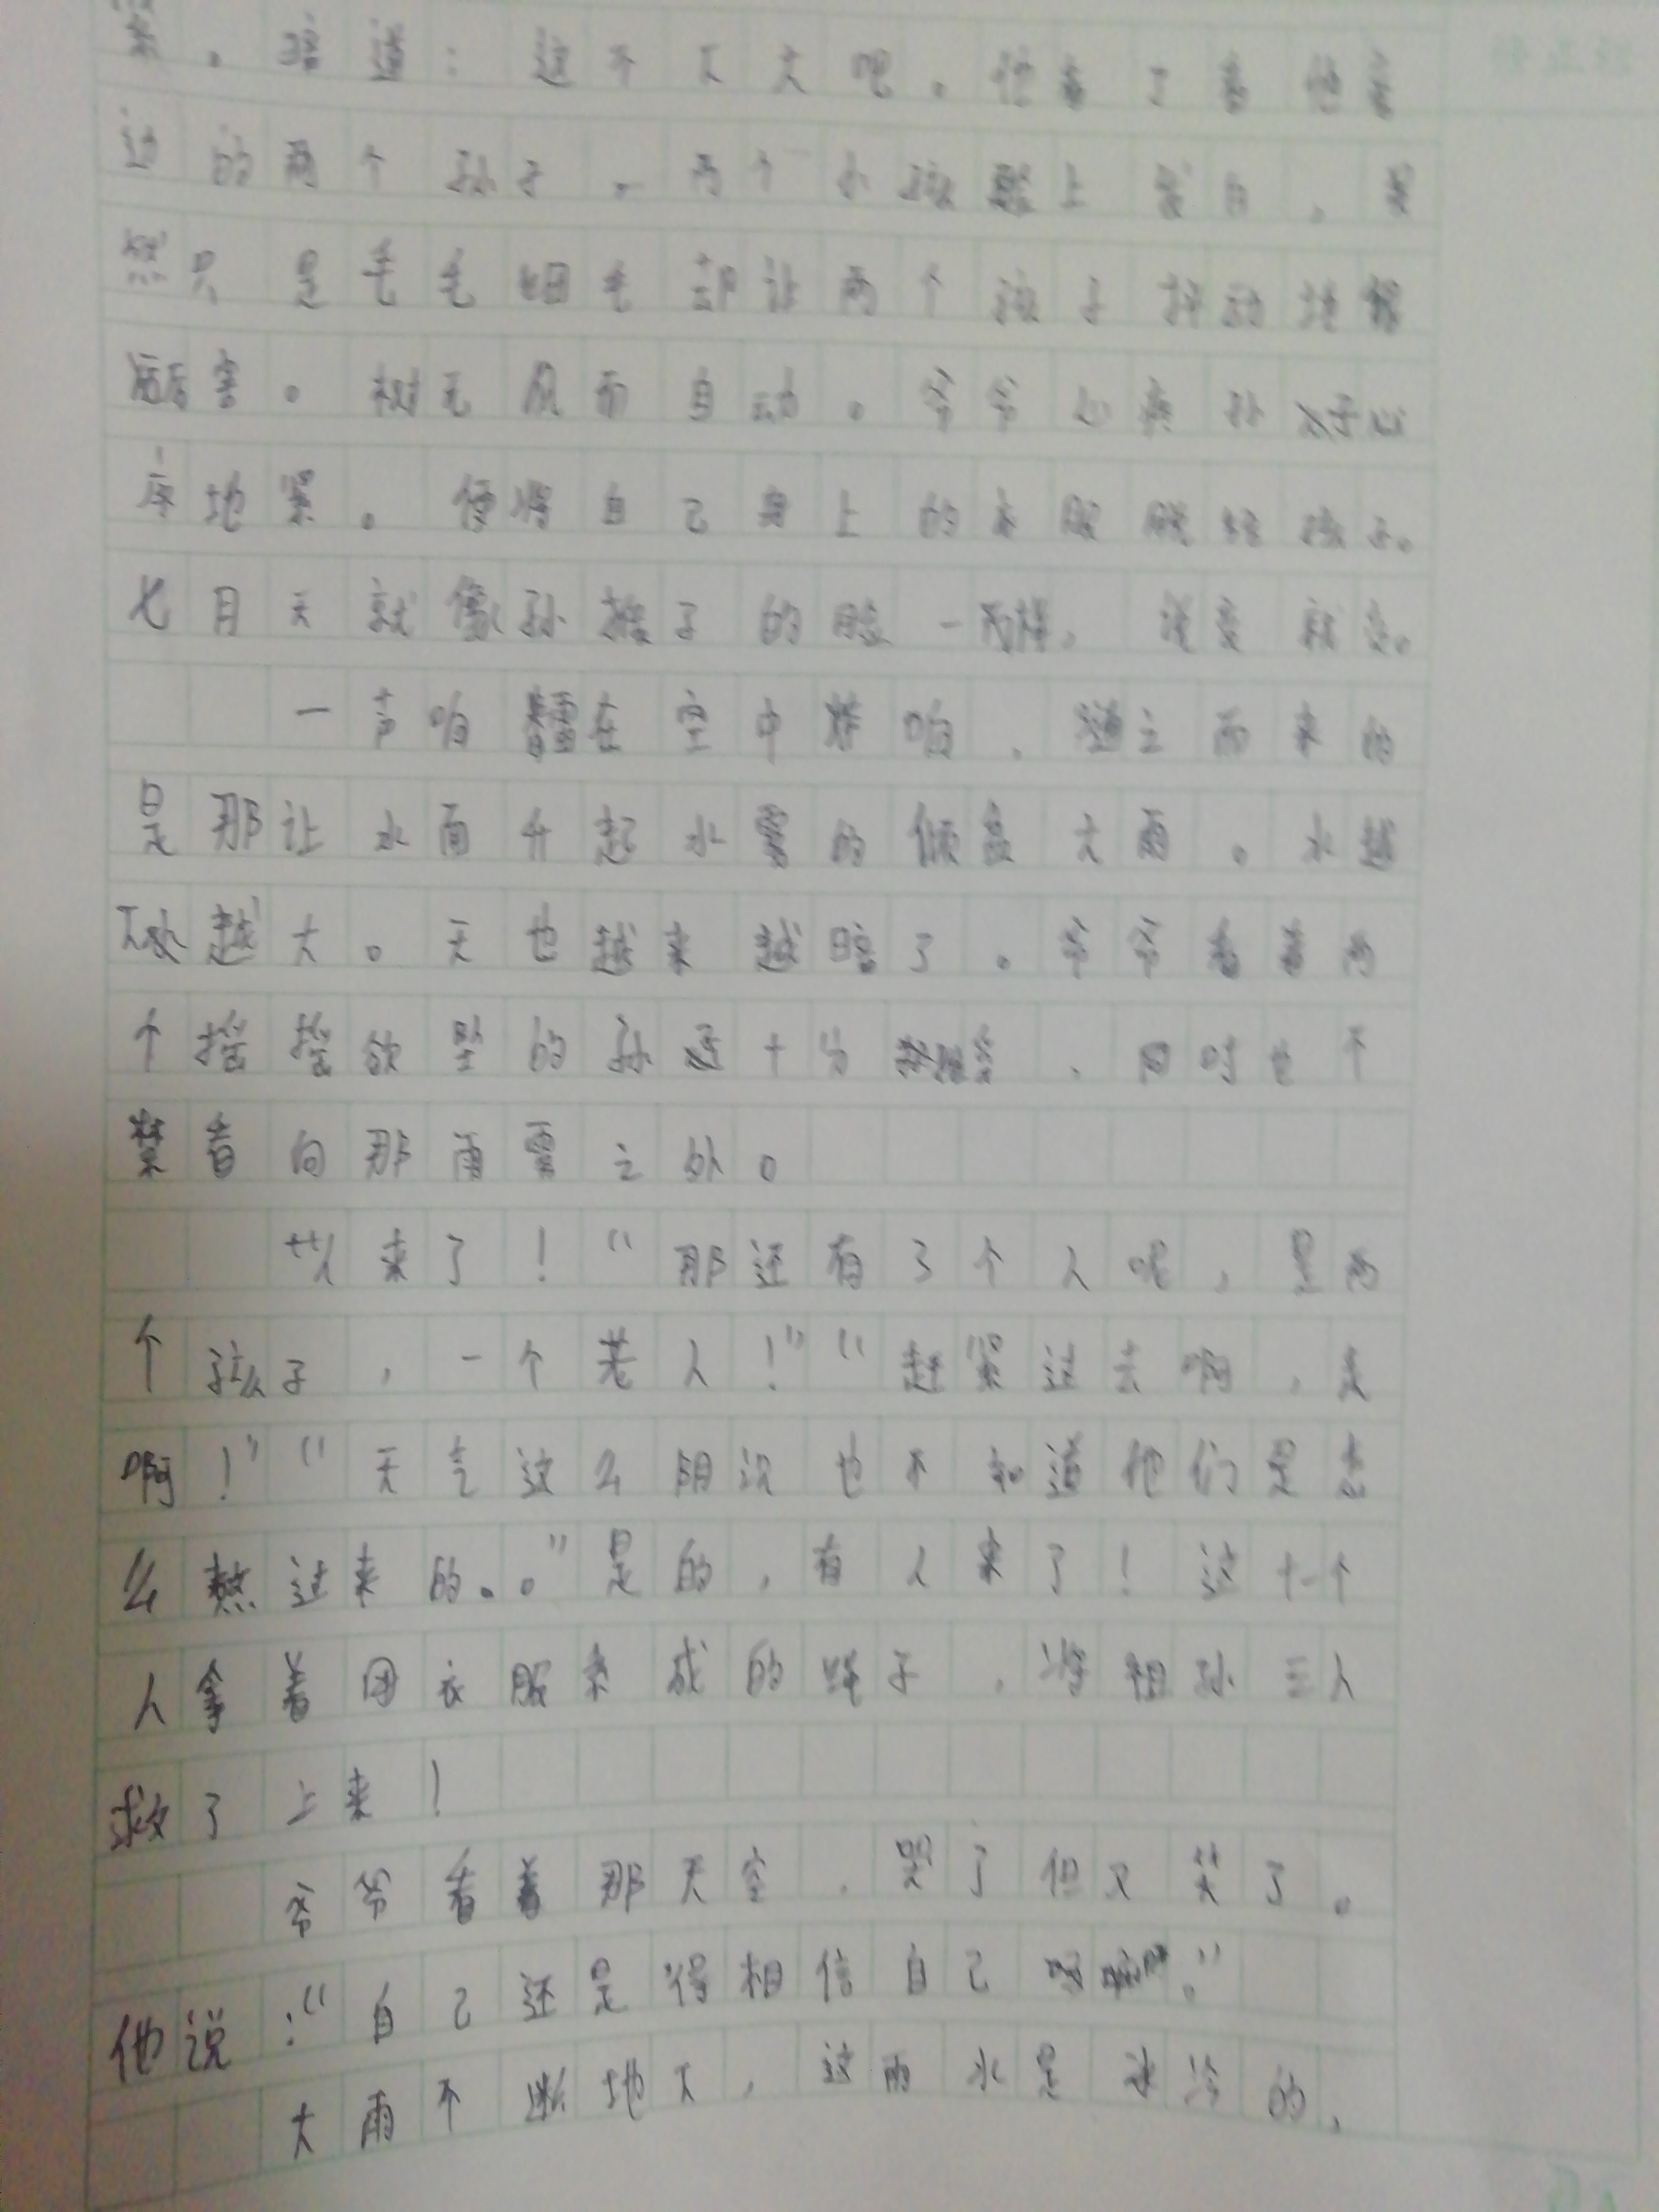 暗道：这个不大吧。他看了看他身
边的两个孙子。两个小孩脸上发白，虽
然只是毛毛细毛却让两个孩子抖动地
厉害。树无风而自动。爷爷心疼孙子心
疼地紧。便将自己身上的衣服脱给孩子。
七月天就像孙猴子的脸一样，说变就变。
一声响雷在空中炸响，随之而来的
是那让水面升起水雾的倾盆大雨。水越
越大。天也越来越暗了。爷爷看着两
个摇摇欲坠的孙子十分，同时也不
禁看向那雨雾之外。
人来了！“那还有3个人呢，是两
个孩子，一个老人！”“赶紧过去啊，走
啊！”“天气这么阴沉也不知道他们是怎
么熬过来的。。”是的，有人来了！这十个
人拿着用衣服系成的绳子，将祖孙三人
救了上来！
爷爷看着那天空，哭了但又笑了。
他说：“自己还是得相信自己。”
大雨不断地下，这雨水是冰冷的，